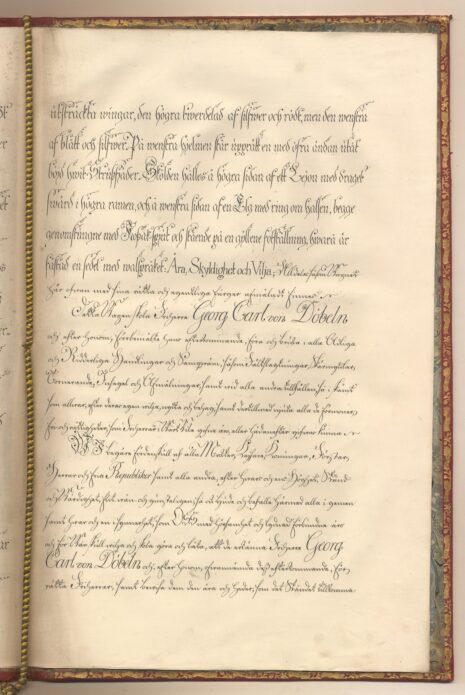 utsträckta wingar, den högra twerdelad af silfwer och rödt, men den wenstra
af blått och silfwer. På wenstra hjelmen står uppräkt en med öfra ändan utåt
böjd hwit Strutsfjäder. Skölden hålles å högra sidan af ett Lejon med draget
swärd i högra ramen, och å wenstra sidan af en Elg med ring om halsen, begge
genomstungne med och stående på en gyllene fotställning, hwarå är
fästad en sedel med walspråket: Ära, Skyldighet och Vilja; Wapnet
här ofwan med sina rätta och egentliga färger afmåladt finnes
Detta Wapen skola Friherre Georg Carl von Döbeln
och efter honom, förbemälte hans efterkommande, föra och bruka i alla Adliga
och Ridderliga Handlingar och Samqväm, såsom Fältslagtningar, Stormningar,
Torneerande, Insegel och Afmålningar, samt wid alla andra tillfällen, så i strid
som allwar, efter deras egen wilja, nytta och behag, samt derutinnan njuta alla de förmoner,
som Friherrar i Wårt Rike gifne äro, eller hädanefter gifwas kunna
Wi begäre fördenskull af alla Kejsare, Konungar, Furstar,
Herrar och fria Republiker samt alla andra, efter hwars och ens Höghet, Stånd
och Wärdighet, och befalle härmed alla i gemen
samt hwar och en i synnerhet, som Oss med hörsamhet och lydnad förbundne äro
och för Wår skull wilja och skola göra och låta, att de erkänna Friherre Georg
Carl von Döbeln och, efter honom, ofwannämnde dess efterkommande, för
rätta Friherrar, samt bewisa dem den ära och heder, som det Ståndet tillkomma